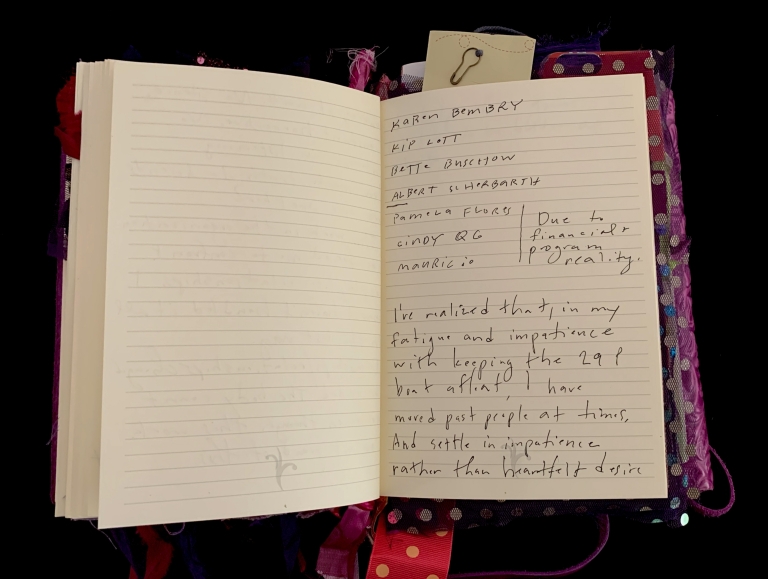 KAREN BEMBRY
KIP LOTT
BETTE BUSCHOW
ALBERT SCHERBARTH
PAMELA FLORES
CINDY QG
MAURICIO
Due to
financial +
program
reality.
I've realized that, in my
fatigue and impatience
with keeping the 29 P
boat afloat, I have
moved past people at times,
And settle in impatience
rather than heartfelt desire